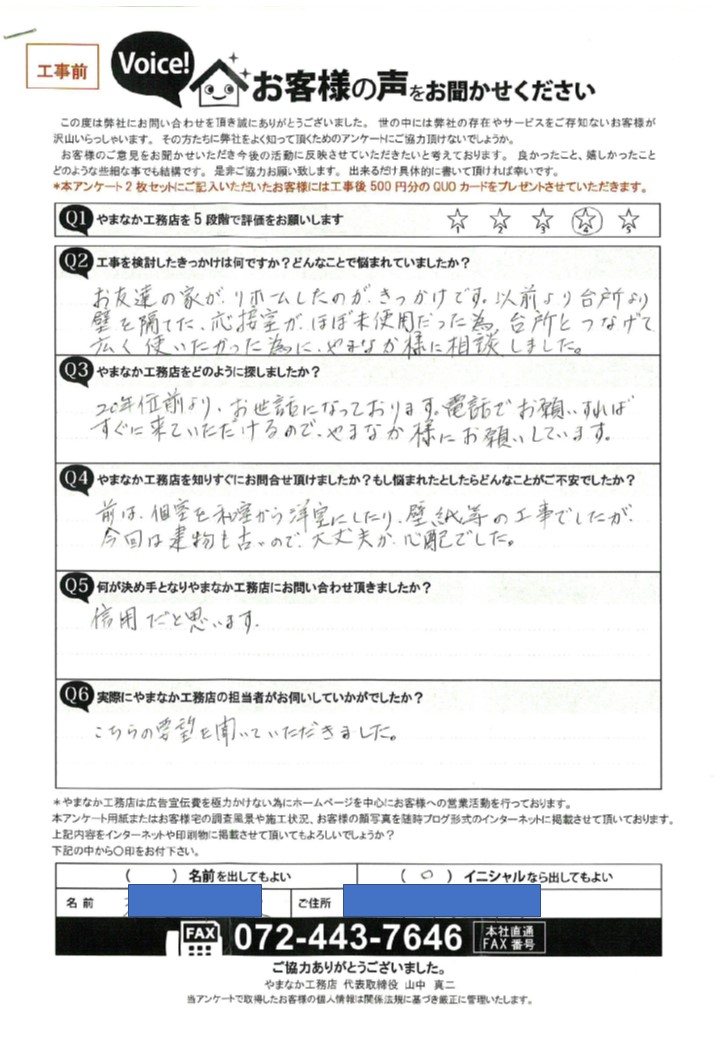 工事前
Voice!
お客様の声をお聞かせください
この度は弊社にお問い合わせを頂き誠にありがとうございました。 世の中には弊社の存在やサービスをご存知ないお客様が
沢山いらっしゃいます。 その方たちに弊社をよく知って頂くためのアンケートにご協力頂けないでしょうか。
お客様のご意見をお聞かせいただき今後の活動に反映させていただきたいと考えております。 良かったこと、嬉しかったこと
どのような些細な事でも結構です。 是非ご協力お願い致します。 出来るだけ具体的に書いて頂ければ幸いです。
*本アンケート2枚セットにご記入いただいたお客様には工事後500円分のQUOカードをプレゼントさせていただきます。
Q1 やまなか工務店を5段階で評価をお願いします 1 2 3 4 5
Q2 工事を検討したきっかけは何ですか?どんなことで悩まれていましたか?
お友達の家が、リホームしたのが、きっかけです。以前より台所より
壁を隔てた、応接室が、ほぼ未使用だった為、台所とつなげて
広く使いたかった為に、やまなか様に相談しました。
Q3 やまなか工務店をどのように探しましたか?
20年位前より、お世話になっております。電話でお願いすれば
すぐに来ていただけるので、やまなか様にお願いしています。
Q4 やまなか工務店を知りすぐにお問合せ頂けましたか?もし悩まれたとしたらどんなことがご不安でしたか?
前は、個室を和室から洋室にしたり、壁紙等の工事でしたが、
今回は建物も古いので、大丈夫か、心配でした。
Q5 何が決め手となりやまなか工務店にお問い合わせ頂きましたか?
信用だと思います。
Q6 実際にやまなか工務店の担当者がお伺いしていかがでしたか?
こちらの要望を聞いていただきました。
*やまなか工務店は広告宣伝費を極力かけない為にホームページを中心にお客様への営業活動を行っております。
本アンケート用紙またはお客様宅の調査風景や施工状況、お客様の顔写真を随時ブログ形式のインターネットに掲載させて頂いております。
上記内容をインターネットや印刷物に掲載させて頂いてもよろしいでしょうか?
下記の中から〇印をお付下さい。
( ) 名前を出してもよい ( ○ ) イニシャルなら出してもよい
名前 ご住所
FAX 072-443-7646 本社直通 FAX番号
ご協力ありがとうございました。
やまなか工務店 代表取締役 山中 真二
当アンケートで取得したお客様の個人情報は関係法規に基づき厳正に管理いたします。